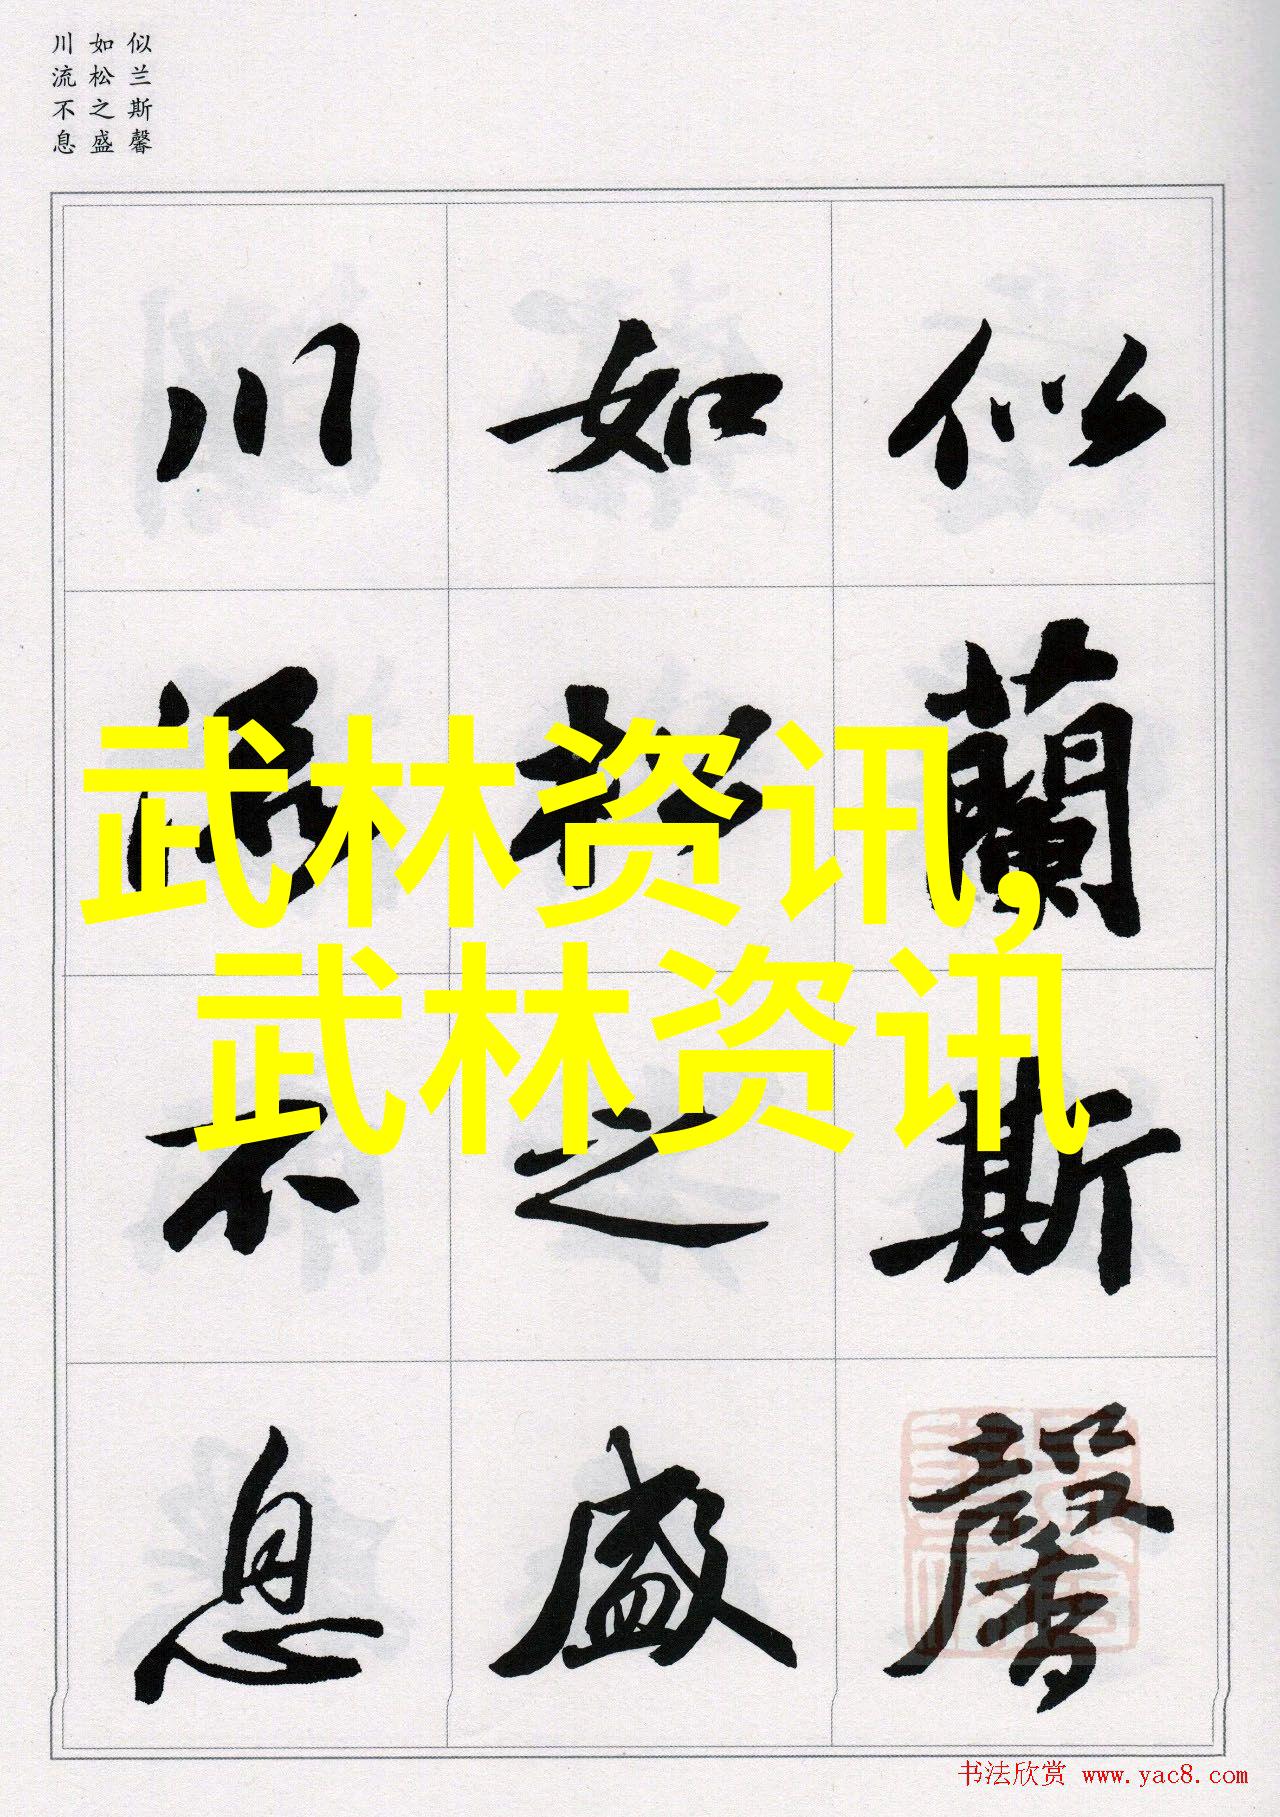 似兰斯馨
如松之盛
川流不息
似蘭斯馨
如松之盛
川流不息
武林资讯,
武林资讯
书法欣赏 www.yac8.com